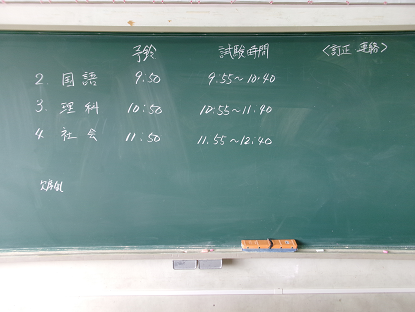 予鈴 試験時間 <訂正 連絡>
2. 国語 9.50 9:55～10:40
3. 理科 10:50 10:55～11:40
4. 社会 11.50 11.55～12:40
欠席